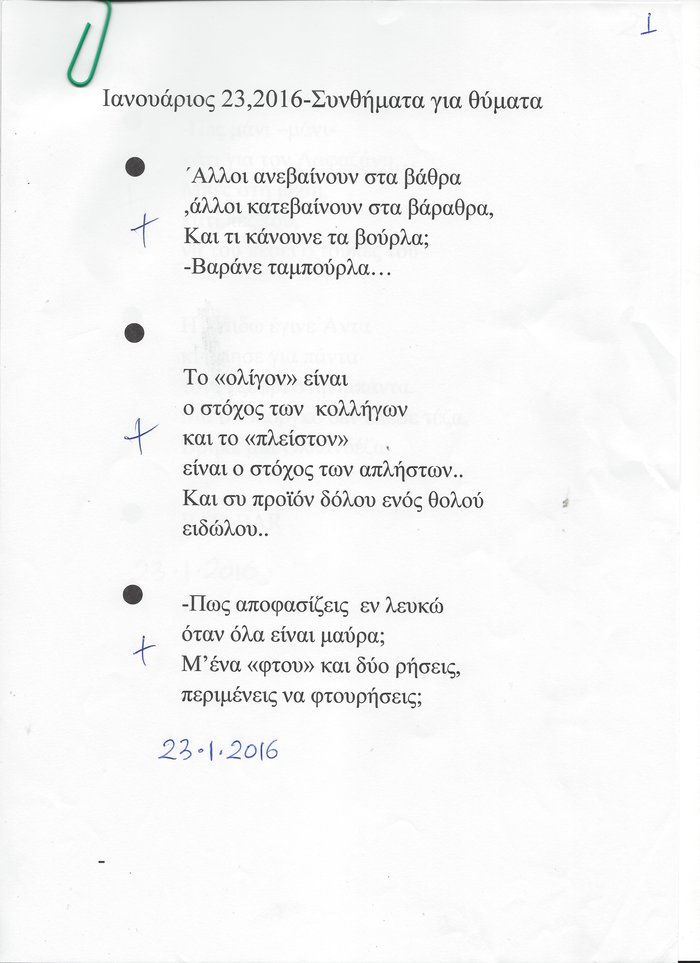 1
Ιανουάριος 23,2016-Συνθήματα για θύματα
΄Αλλοι ανεβαίνουν στα βάθρα
,άλλοι κατεβαίνουν στα βάραθρα,
Και τι κάνουνε τα βούρλα;
-Βαράνε ταμπούρλα…
Το «ολίγον» είναι
ο στόχος των κολλήγων
και το «πλείστον»
είναι ο στόχος των απλήστων..
Και συ προϊόν δόλου ενός θολού
ειδώλου..
-Πως αποφασίζεις εν λευκώ
όταν όλα είναι μαύρα;
Μ’ένα «φτου» και δύο ρήσεις,
περιμένεις να φτουρήσεις;
23.1.2016
-